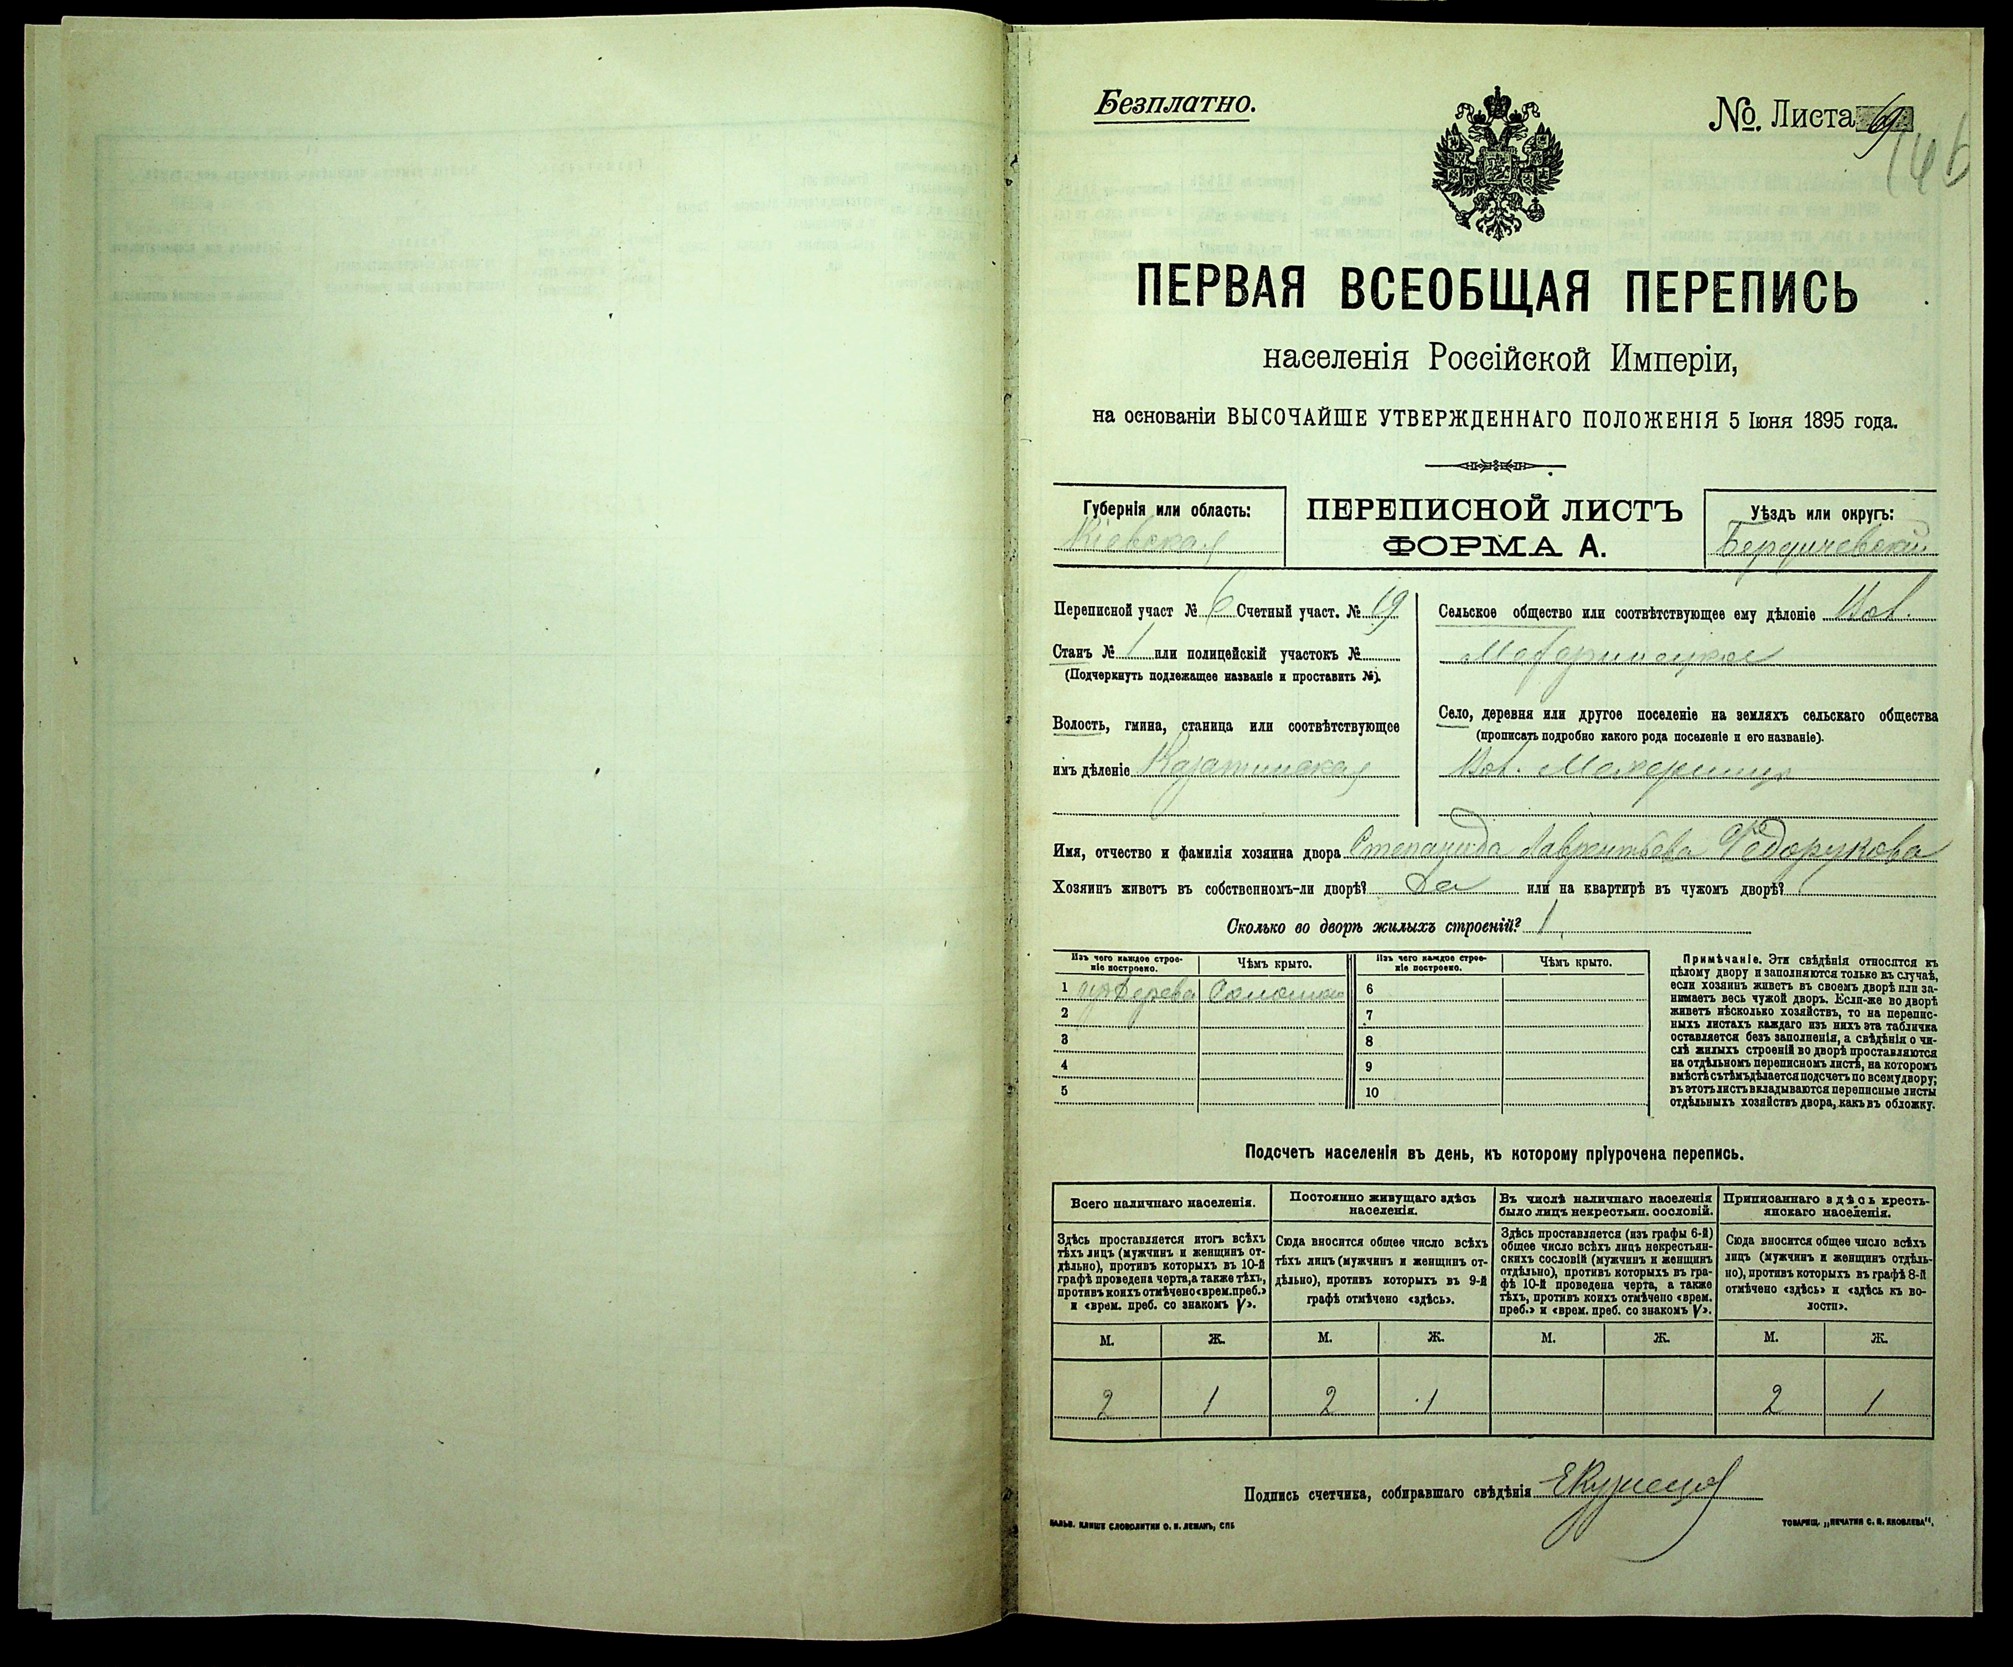 Безплатно.
№ Листа 69
146
ПЕРВАЯ ВСЕОБЩАЯ ПЕРЕПИСЬ
населенія Россійской Имперіи,
на основаніи ВЫСОЧАЙШЕ УТВЕРЖДЕННАГО ПОЛОЖЕНІЯ 5 Іюня 1895 года.
Губернія или область:
Кіевская
ПЕРЕПИСНОЙ ЛИСТЪ
ФОРМА А.
Уѣздъ или округъ:
Бердичевскій
Переписной участ № 6 Счетный участ. № 19
Станъ № 1 или полицейскій участокъ №
(Подчеркнуть подлежащее названіе и проставить №).
Волость, гмина, станица или соотвѣтствующее
имъ дѣленіе Казатинская
Сельское общество или соотвѣтствующее ему дѣленіе
Село, деревня или другое поселеніе на земляхъ сельскаго общества
(прописать подробно какого рода поселеніе и его названіе).
Имя, отчество и фамилія хозяина двора Степанида Лаврентьева Федорукова
Хозяинъ живетъ въ собственномъ-ли дворѣ? Да или на квартирѣ въ чужомъ дворѣ?
Сколько во дворѣ жилыхъ строеній? 1
Изъ чего каждое строе-
ніе построено.
Чѣмъ крыто.
Изъ чего каждое строе-
ніе построено.
Чѣмъ крыто.
1 изъ дерева Соломою 6
2 7
3 8
4 9
5 10
Примѣчаніе. Эти свѣдѣнія относятся къ
цѣлому двору и заполняются только въ случаѣ,
если хозяинъ живетъ въ своемъ дворѣ или за-
нимаетъ весь чужой дворъ. Если-же во дворѣ
живетъ нѣсколько хозяйствъ, то на перепис-
ныхъ листахъ каждаго изъ нихъ эта табличка
оставляется безъ заполненія, а свѣдѣнія о чи-
слѣ жилыхъ строеній во дворѣ проставляются
на отдѣльномъ переписномъ листѣ, на которомъ
вмѣстѣ съ тѣмъ дѣлается подсчетъ по всему двору;
въ этотъ листъ вкладываются переписные листы
отдѣльныхъ хозяйствъ двора, какъ въ обложку.
Подсчетъ населенія въ день, къ которому пріурочена перепись.
Всего наличнаго населенія.
Здѣсь проставляется итогъ всѣхъ
тѣхъ лицъ (мужчинъ и женщинъ от-
дѣльно), противъ которыхъ въ 10-й
графѣ проведена черта, а также тѣхъ,
противъ коихъ отмѣчено «врем. преб.»
и «врем. преб. со знакомъ V».
Постоянно живущаго здѣсь
населенія.
Сюда вносится общее число всѣхъ
тѣхъ лицъ (мужчинъ и женщинъ от-
дѣльно), противъ которыхъ въ 9-й
графѣ отмѣчено «здѣсь».
Въ числѣ наличнаго населенія
было лицъ некрестьян. сословій.
Здѣсь проставляется (изъ графы 6-й)
общее число всѣхъ лицъ некрестьян-
скихъ сословій (мужчинъ и женщинъ
отдѣльно), противъ которыхъ въ гра-
фѣ 10-й проведена черта, а также
тѣхъ, противъ коихъ отмѣчено «врем.
преб.» и «врем. преб. со знакомъ V».
Приписаннаго здѣсь кресть-
янскаго населенія.
Сюда вносится общее число всѣхъ
лицъ (мужчинъ и женщинъ отдѣль-
но), противъ которыхъ въ графѣ 8-й
отмѣчено «здѣсь» и «здѣсь къ во-
лости».
М. Ж. М. Ж. М. Ж. М. Ж.
2 1 2 1 2 1
Подпись счетчика, собиравшаго свѣдѣнія ЕКузнецов
ГАЛЬВ. КЛИШЕ СЛОВОЛИТНИ О. И. ЛЕМАНЪ, СПБ
ТОВАРИЩ. „ПЕЧАТНЯ С. П. ЯКОВЛЕВА".